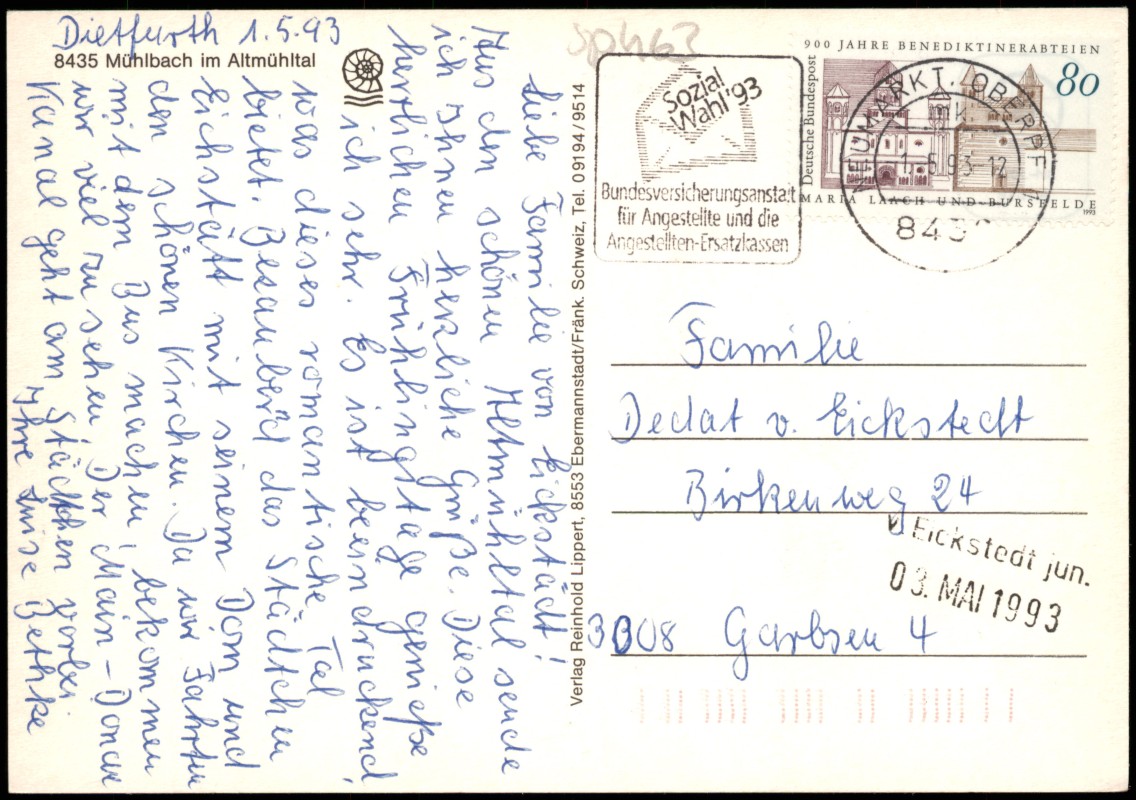 Dietfurth 1.5.93
8435 Mühlbach im Altmühltal
Liebe Familie von Eickstädt!
Aus den schönen Altmühltal sende
ich Ihnen herzliche Grüße. Diese
herrlichen Frühlingstage genieße
ich sehr. Es ist beeindruckend
was dieses romantische Tal
bietet. Bezaubernd das Städtchen
Eichstätt mit seinem Dom und
den schönen Kirchen. Da wir Fahrten
mit dem Bus machen, bekommen
wir viel zu sehen. Der Main-Donau
Kanal geht am Städtchen vorbei.
Ihre Luise Bethke
Verlag Reinhold Lippert, 8553 Ebermannstadt/Fränk. Schweiz, Tel. 0 91 94 / 95 14
sp463
Sozial
Wahl '93
Bundesversicherungsanstalt
für Angestellte und die
Angestellten-Ersatzkassen
900 JAHRE BENEDIKTINERABTEIEN
80
Deutsche Bundespost
MARIA LAACH UND BURSFELDE
1993
NEUMARKT, OBERPF
mk
1.-5.93-12
843
Familie
Dedat v. Eickstedt
Birkenweg 24
v Eickstedt jun.
03. MAI 1993
3008 Garbsen 4